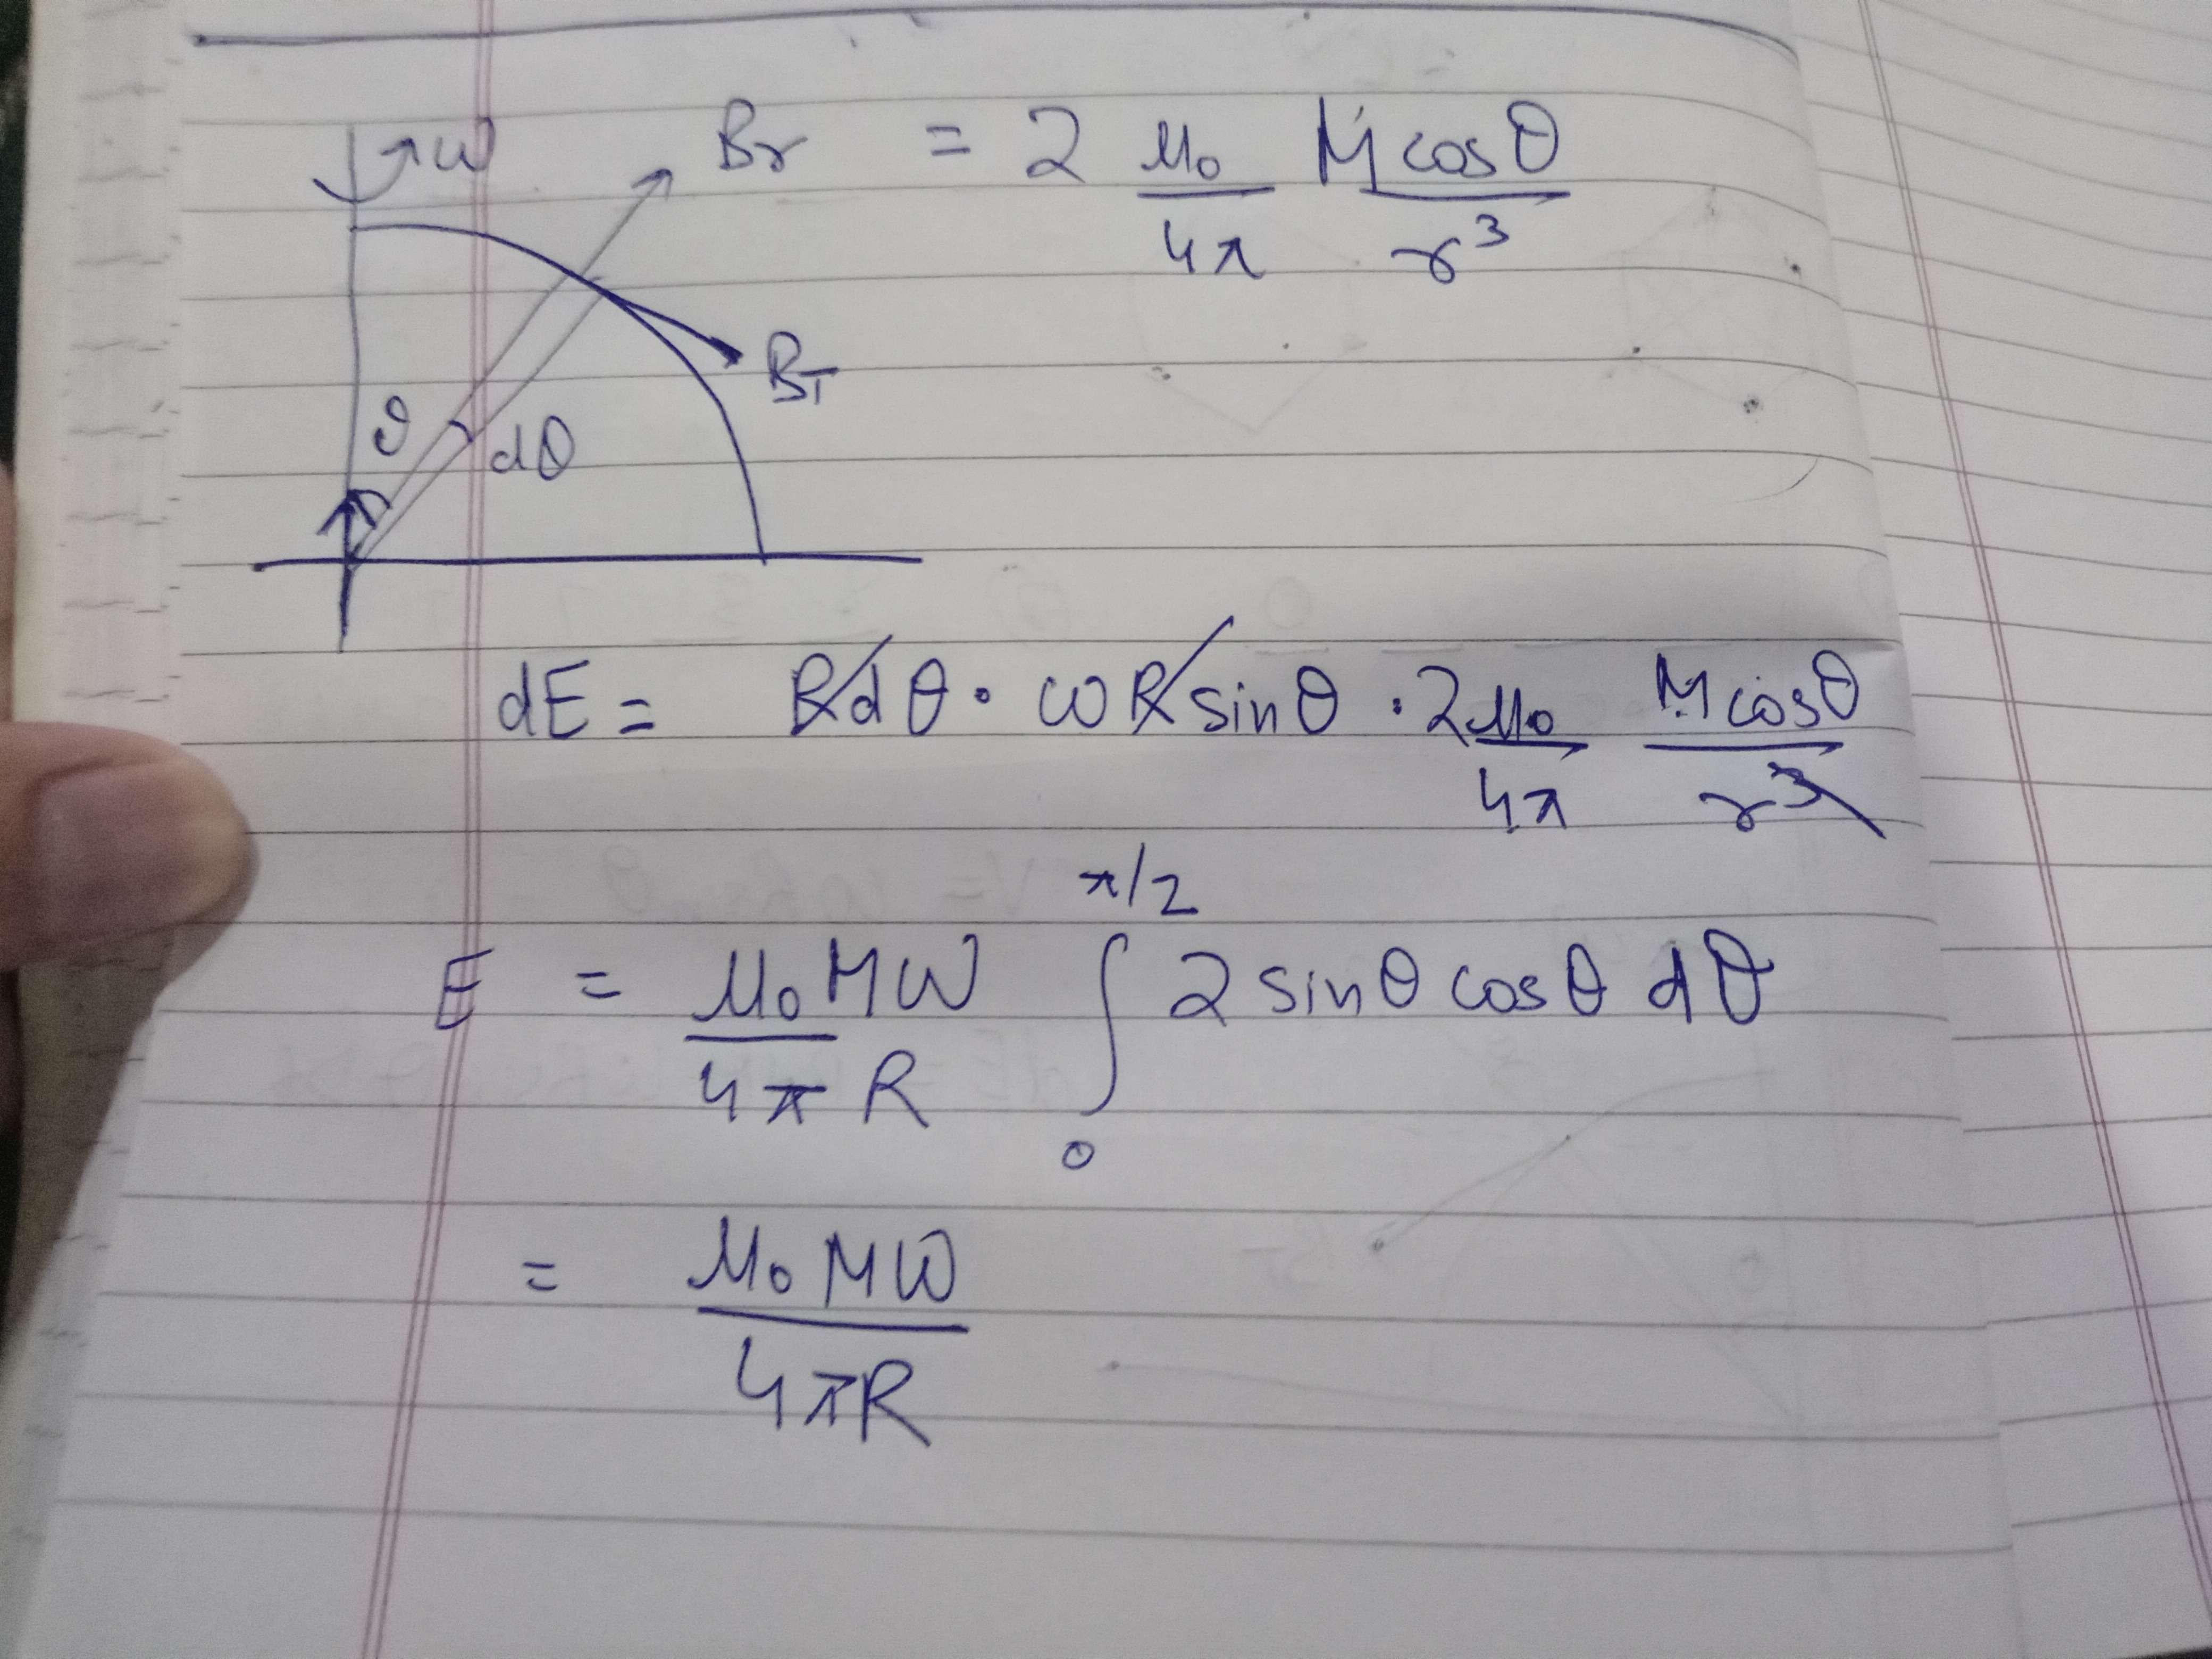 ω
Br = 2 μ₀/4π M cosθ/r³
B_T
θ
dθ
dE = Rdθ · ωR sinθ · 2 μ₀/4π M cosθ/r³
E = μ₀Mω/4πR ∫₀^π/2 2 sinθ cosθ dθ
= μ₀Mω/4πR